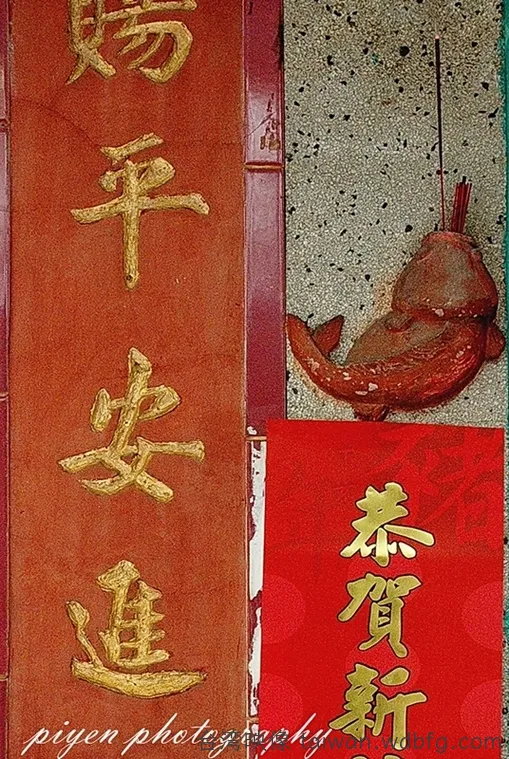 賜平安進
恭賀新
piyen photography
taiwan.wdbfg.com